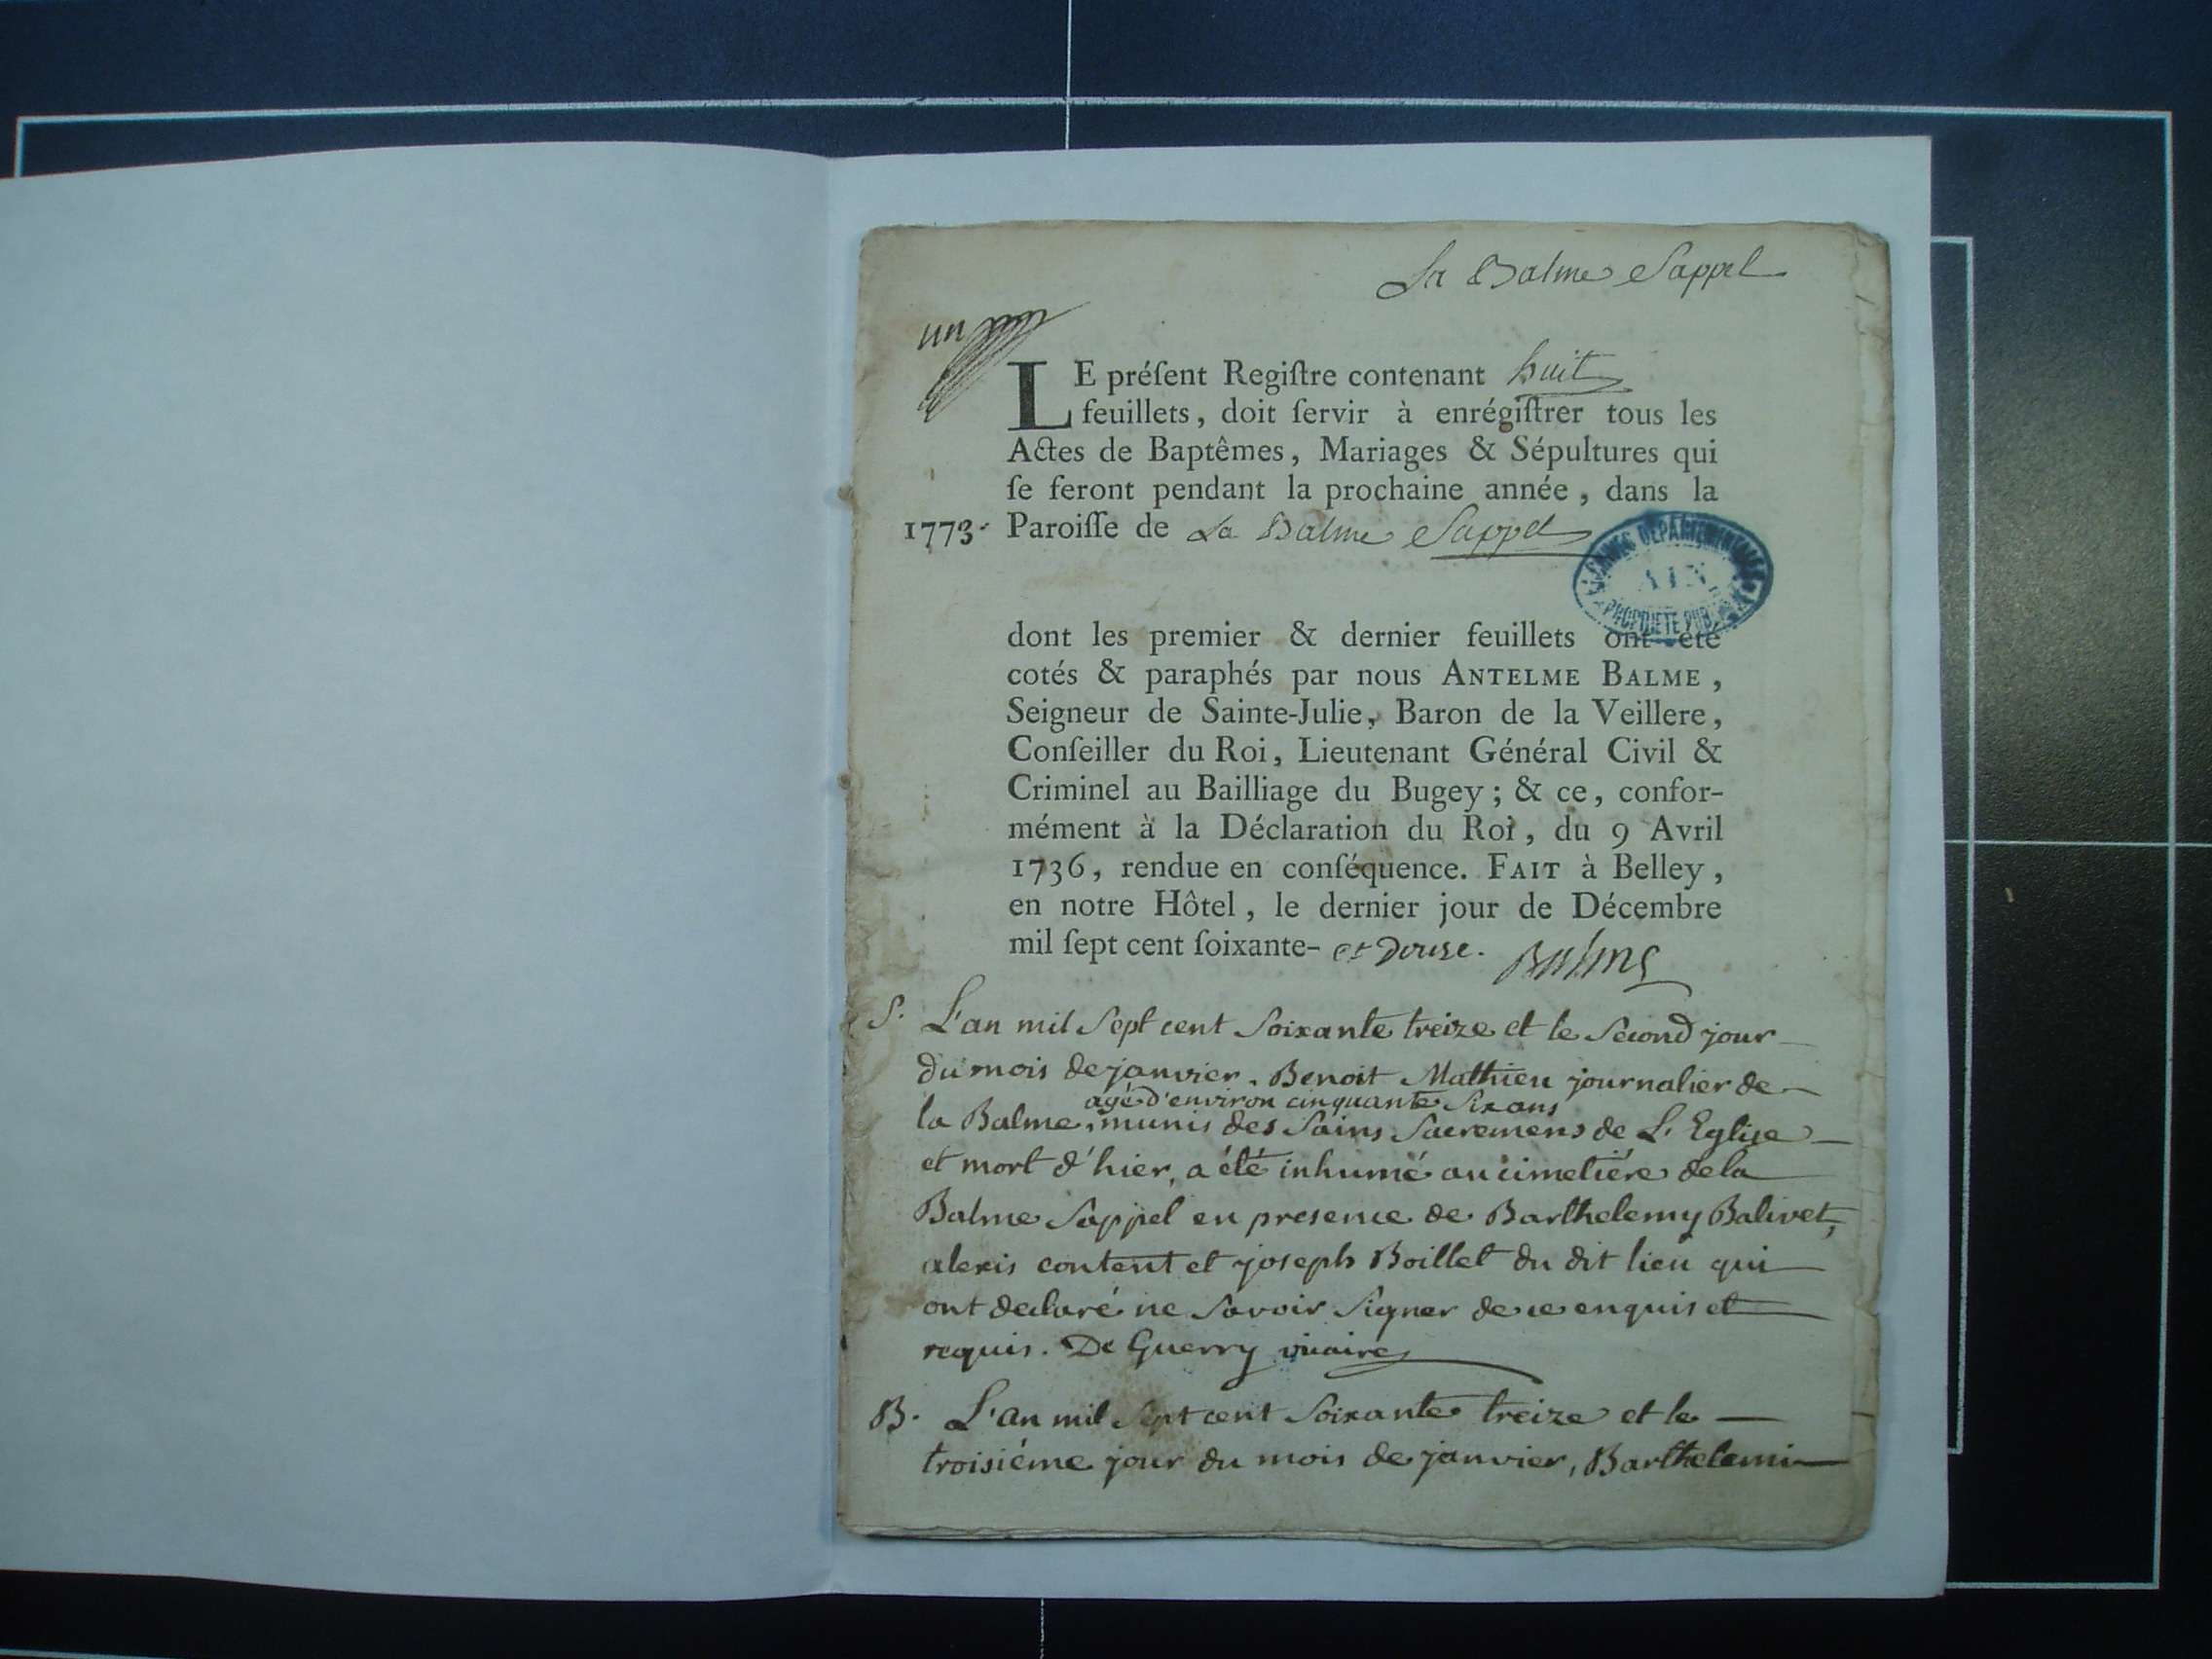 La Balme Sappel
un
LE préſent Regiſtre contenant huit
feuillets, doit ſervir à enrégiſtrer tous les
Actes de Baptêmes, Mariages & Sépultures qui
ſe feront pendant la prochaine année, dans la
1773. Paroiſſe de La Balme Sappel
ARCHIVES DEPARTEMENTALES
AIN
PROPRIETE PUB
dont les premier & dernier feuillets ont été
cotés & paraphés par nous ANTELME BALME,
Seigneur de Sainte-Julie, Baron de la Veillere,
Conſeiller du Roi, Lieutenant Général Civil &
Criminel au Bailliage du Bugey; & ce, confor-
mément à la Déclaration du Roi, du 9 Avril
1736, rendue en conſéquence. FAIT à Belley,
en notre Hôtel, le dernier jour de Décembre
mil ſept cent ſoixante- et Douse. Balme
S. L'an mil Sept cent Soixante treize et le Second jour
du mois de janvier. Benoit Mathieu journalier de
agé d'environ cinquante Six ans
la Balme, munis des Sains Sacremens de L'Eglise
et mort d'hier, a été inhumé au cimetiére de la
Balme Sappel en presence de Barthelemy Balivet,
alexis content et joseph Boillet du dit lieu qui
ont declaré ne Savoir Signer de ce enquis et
requis. De Guerry vicaire
B. L'an mil Sept cent Soixante treize et le
troisiéme jour du mois de janvier, Barthelemi